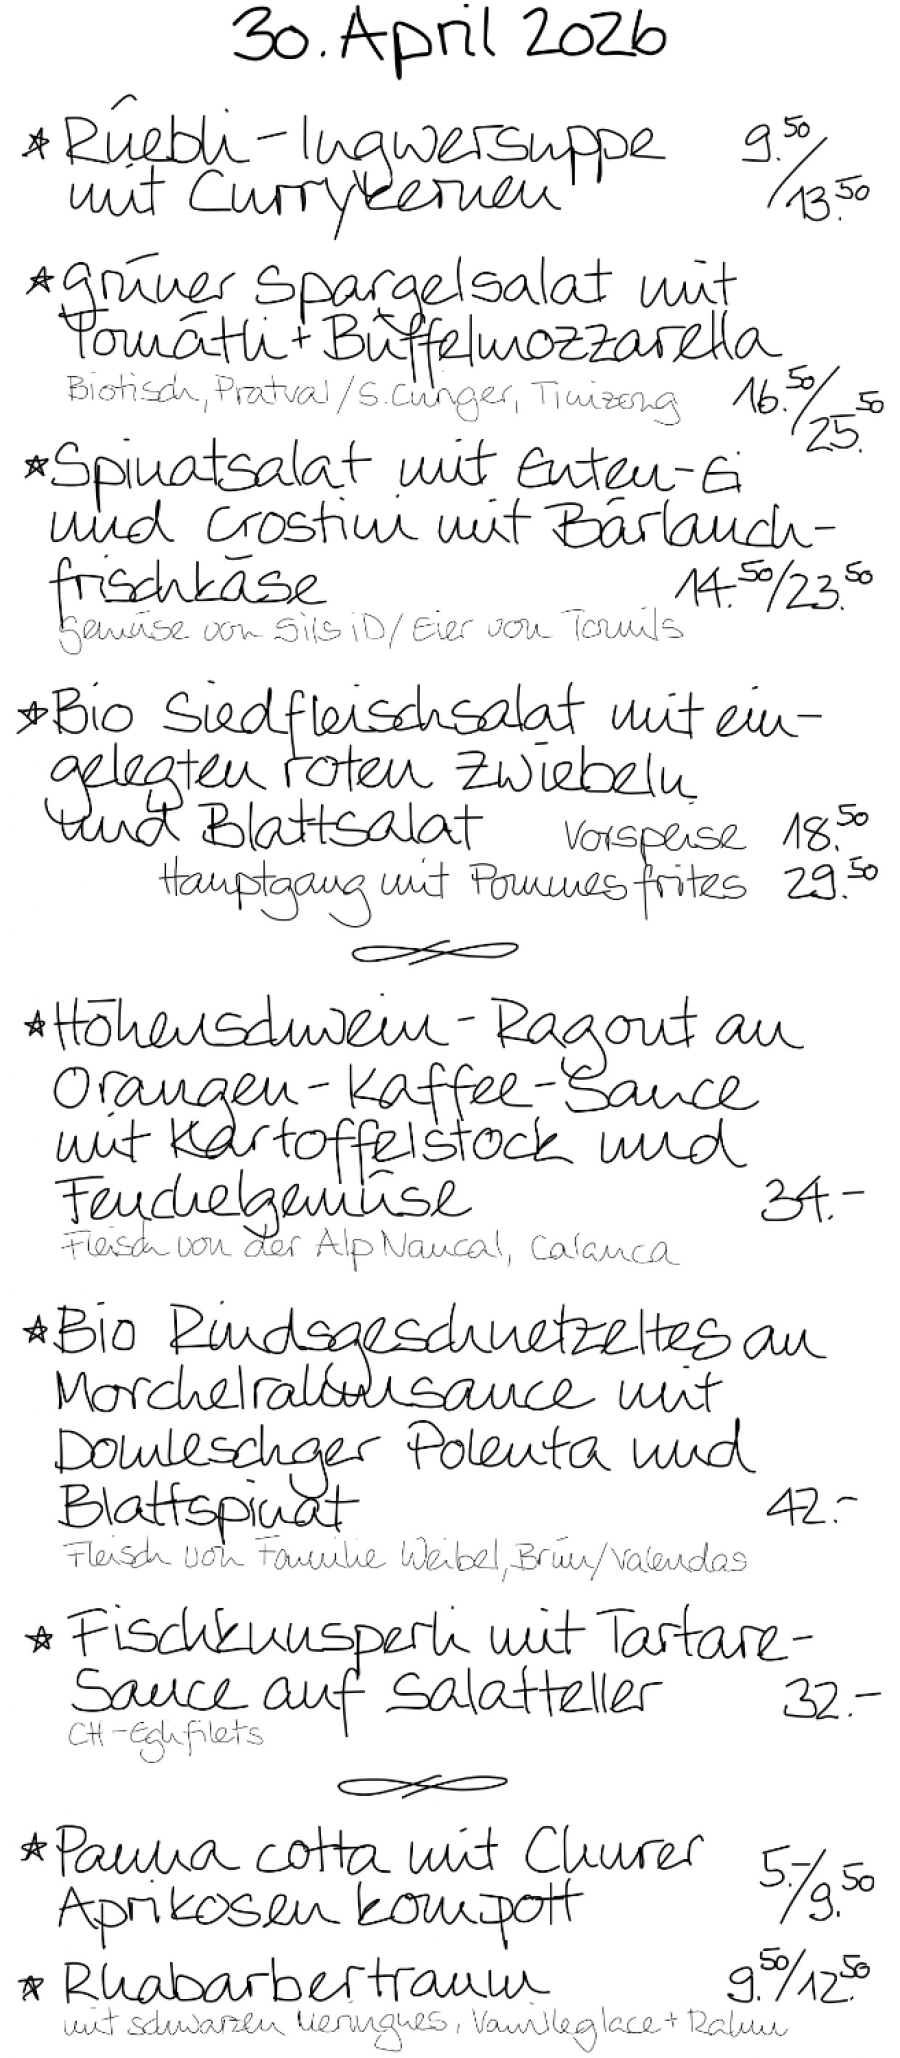 30. April 2026
* Rüebli-Ingwersuppe 9.50/13.50
mit Currykernen
* grüner Spargelsalat mit
Tomätli + Büffelmozzarella
Biotisch, Pratval / S. Cunger, Tinizong 16.50/25.50
* Spinatsalat mit Enten-Ei
und Crostini mit Bärlauch-
frischkäse 14.50/23.50
Gemüse von Sils iD / Eier von Tomils
* Bio Siedfleischsalat mit ein-
gelegten roten Zwiebeln
und Blattsalat Vorspeise 18.50
Hauptgang mit Pommes frites 29.50
* Höhenschwein-Ragout an
Orangen-Kaffee-Sauce
mit Kartoffelstock und
Fenchelgemüse 34.-
Fleisch von der Alp Naucal, Calanca
* Bio Rindsgeschnetzeltes an
Morchelrahmsauce mit
Domleschger Polenta und
Blattspinat 42.-
Fleisch von Familie Weibel, Brün/Valendas
* Fischknusperli mit Tartare-
Sauce auf Salatteller 32.-
CH-Eglifilets
* Panna cotta mit Churer
Aprikosenkompott 5.-/9.50
* Rhabarbertraum 9.50/12.50
mit schwarzen Meringues, Vanilleglace + Rahm